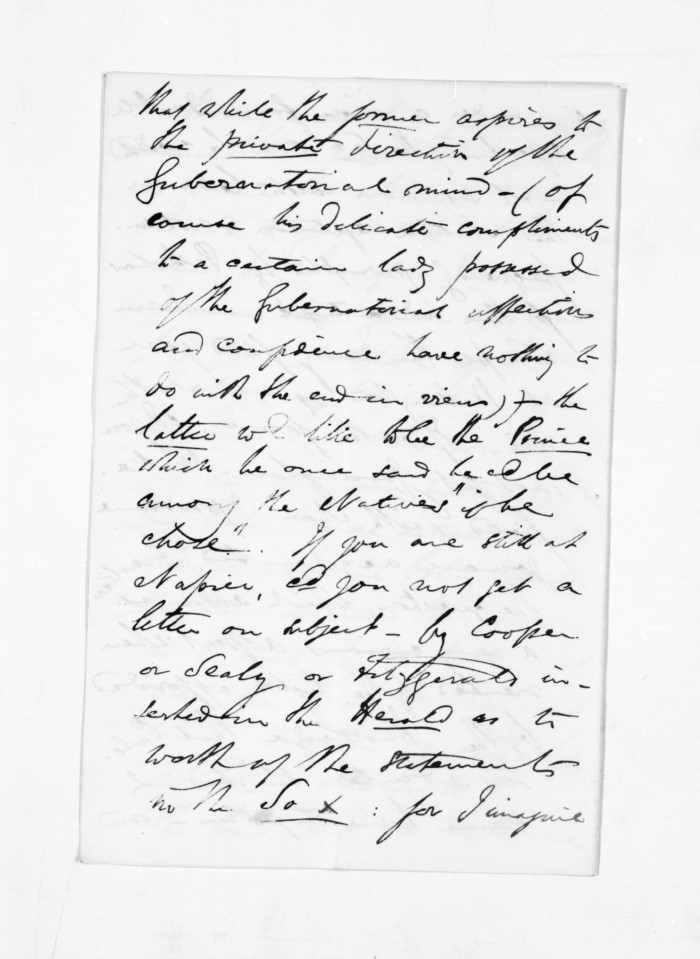 that while the former aspires to
the private direction of the
Gubernatorial mind - (of
course his delicate compliments
to a certain lady possessed
of the Gubernatorial affections
and confidence have nothing to
do with the end in view) - the
latter wd like to be the Prince
which he once said he cd be
among the Natives "if he
chose". If you are still at
Napier, cd you not get a
letter on subject - by Cooper
or Sealy or Fitzgerald in-
serted in the Herald as to
worth of the statements
in the So x : for I imagine